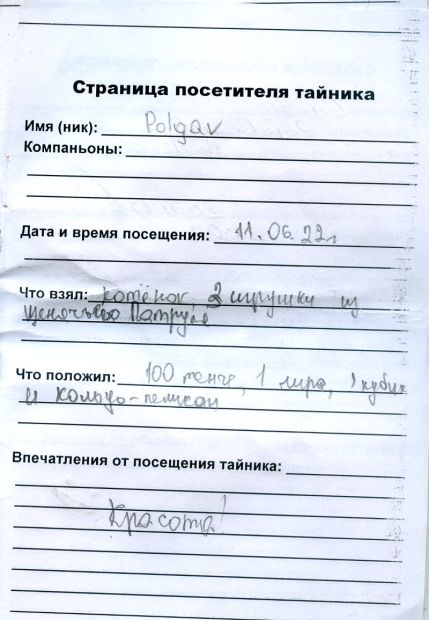 Страница посетителя тайника
Имя (ник): Polgav
Компаньоны:
Дата и время посещения: 11.06.22г
Что взял: котёнок, 2 игрушки из
щенячьего Патруля
Что положил: 100 тенге, 1 лира, 1 кубик
и кольцо-пеликан
Впечатления от посещения тайника:
Красота!